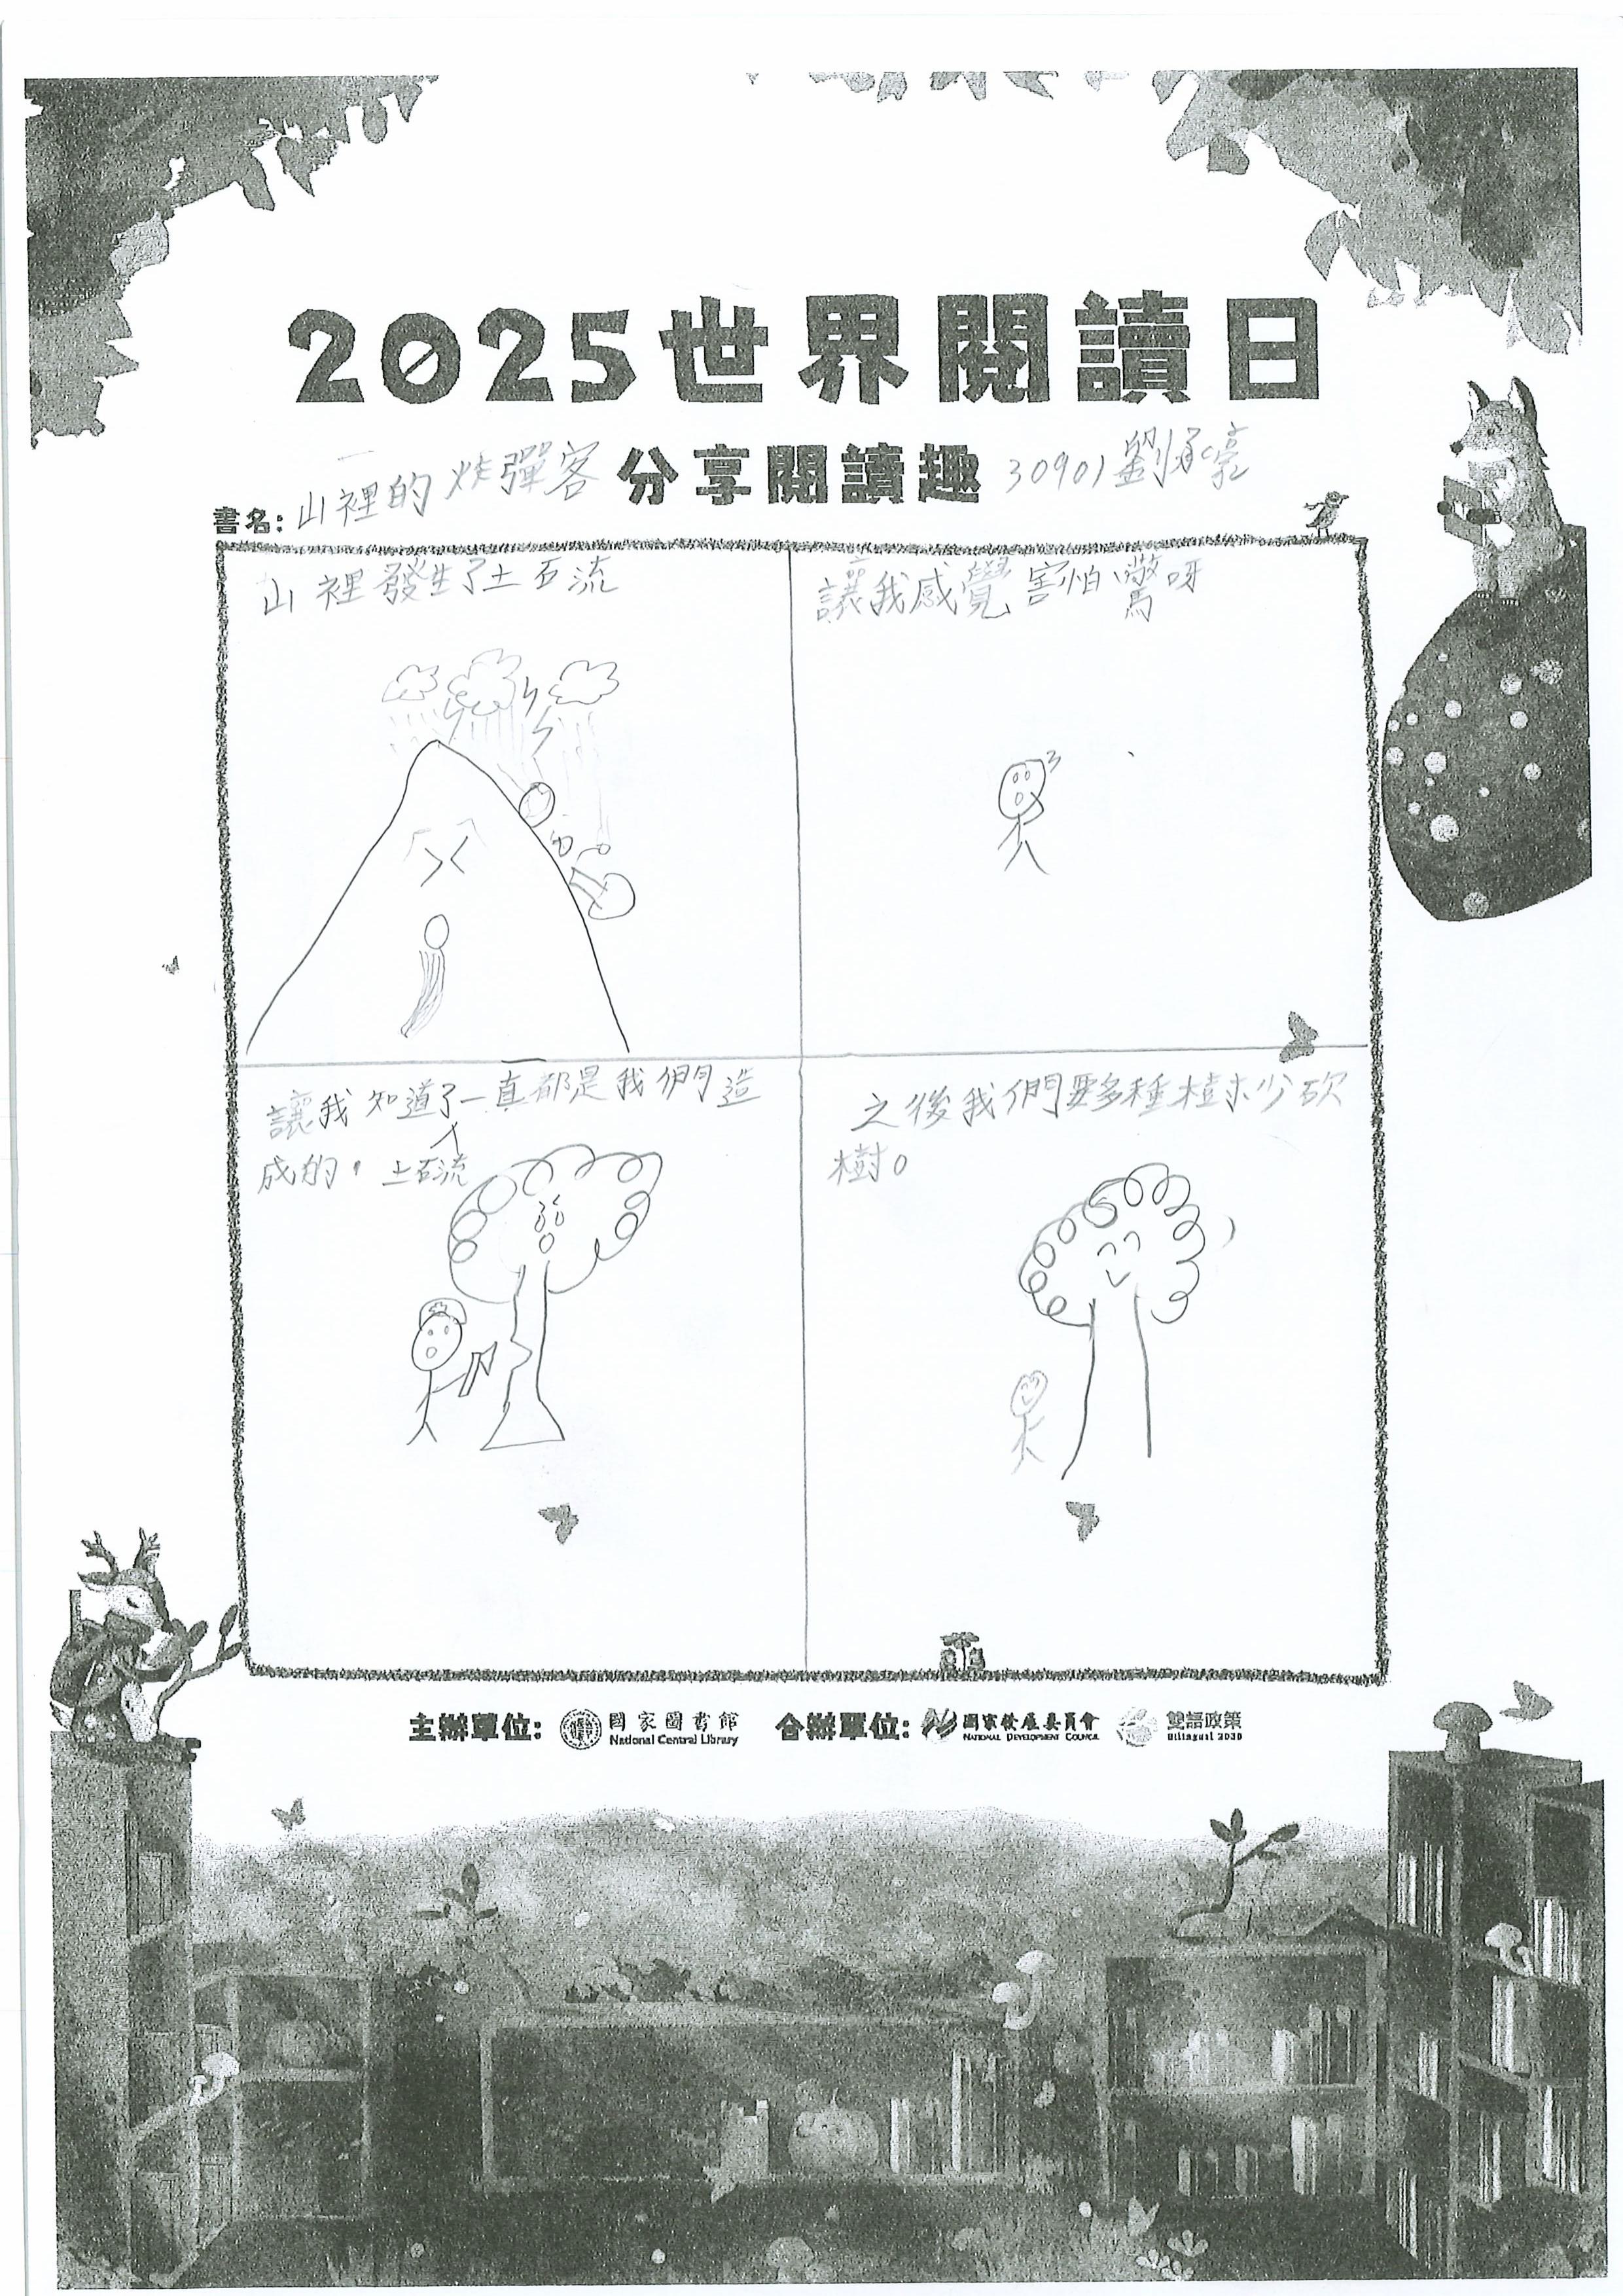 2025世界閱讀日
分享閱讀趣
30901劉承亮
書名：山裡的炸彈客
山裡發生了土石流
讓我感覺害怕、驚呀
讓我知道了土石流一直都是我們造
成的。
之後我們要多種樹少砍
樹。
主辦單位：國家圖書館 National Central Library
合辦單位：國家發展委員會 National Development Council 雙語政策 Bilingual 2030